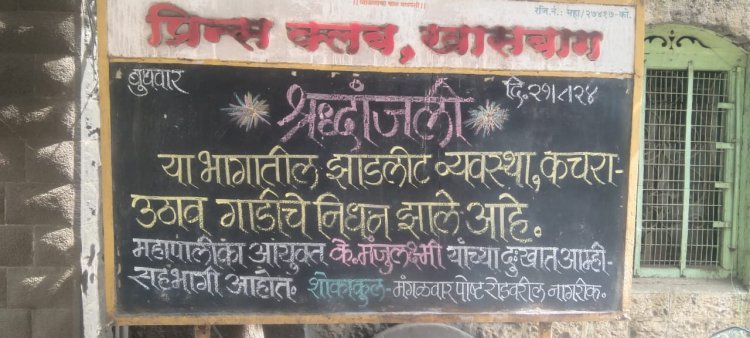 रजि. नं. : महा/२७४१७-को.
प्रिन्स क्लब, खासबाग
बुधवार
दि. २१/८/२४
श्रध्दांजली
या भागातील झाडलोट व्यवस्था, कचरा-
उठाव गाडीचे निधन झाले आहे.
महापालीका आयुक्त कै. मंजुलक्ष्मी यांच्या दुःखात आम्ही-
सहभागी आहोत. शोकाकुल - मंगळवार पोष्ट रोडवरील नागरीक.